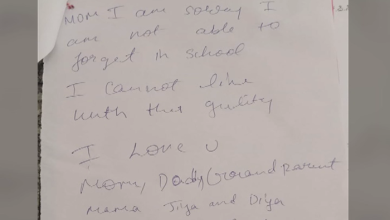 MOM I am sorry I
am not able to
forget in school
I cannot live
with that guilty
I Love U
Mom, Daddy Grand parent
mama Jiya and Diya